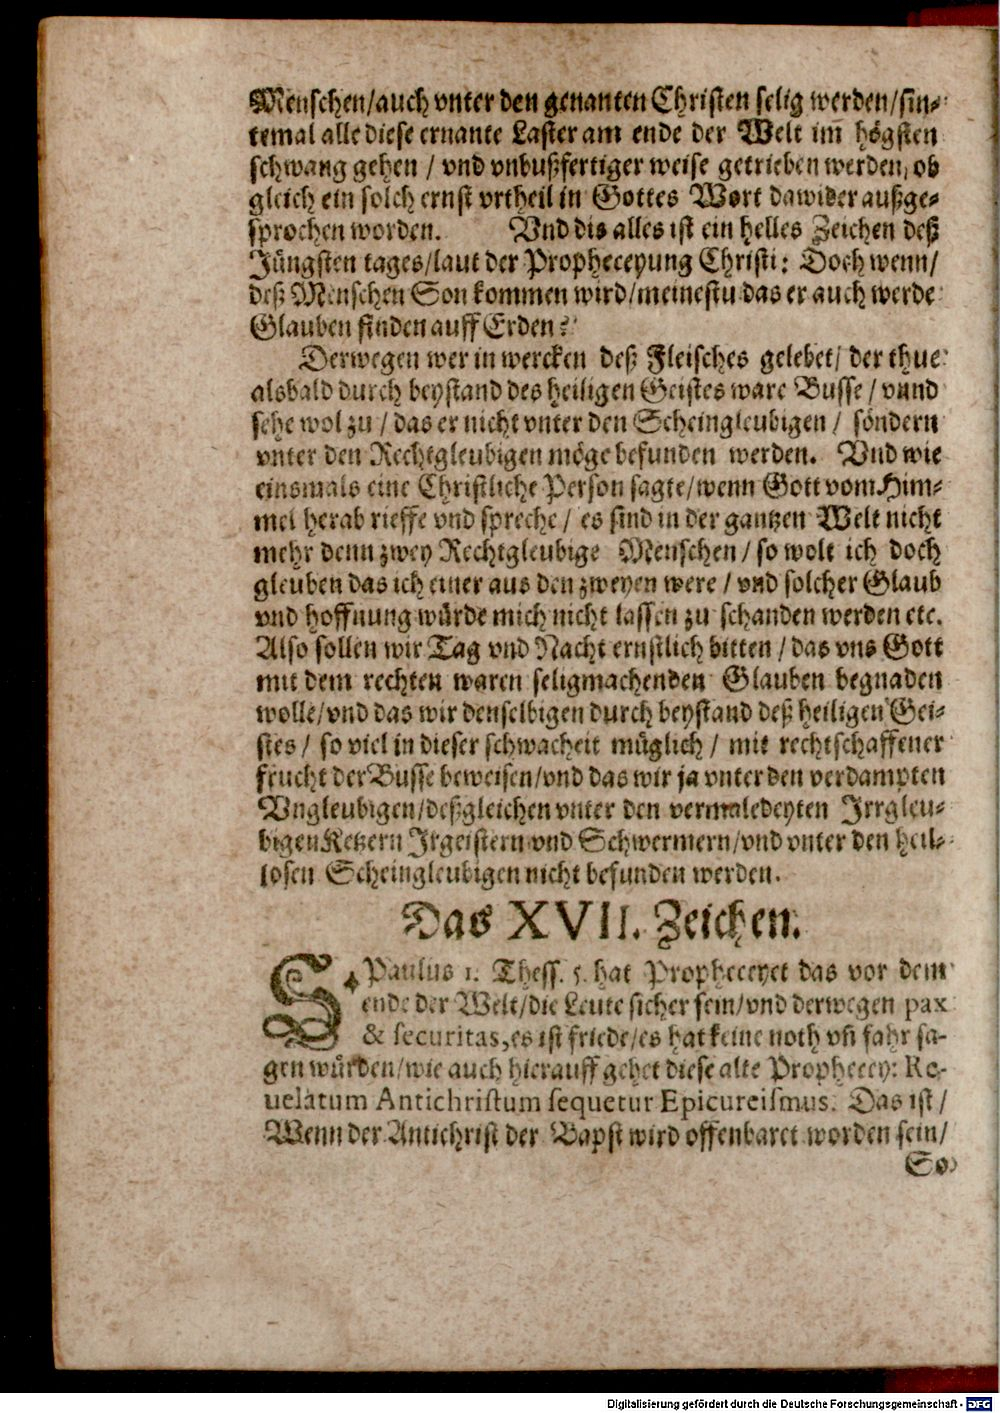 Menschen/auch vnter den genanten Christen selig werden/sin-
temal alle diese ernante Laster am ende der Welt im̃ högsten
schwang gehen / vnd vnbußfertiger weise getrieben werden, ob
gleich ein solch ernst vrtheil in Gottes Wort dawider außge-
sprochen worden. Vnd dis alles ist ein helles Zeichen deß
Jüngsten tages/laut der Propheceyung Christi: Doch wenn/
deß Menschen Son kommen wird/meinestu das er auch werde
Glauben finden auff Erden?
Derwegen wer in wercken deß Fleisches gelebet/ der thue
alsbald durch beystand des heiligen Geistes ware Busse / vnnd
sehe wol zu / das er nicht vnter den Scheingleubigen / söndern
vnter den Rechtgleubigen möge befunden werden. Vnd wie
einsmals eine Christliche Person sagte/wenn Gott vom Him-
mel herab rieffe vnd spreche / es sind in der gantzen Welt nicht
mehr denn zwey Rechtgleubige Menschen / so wolt ich doch
gleuben das ich einer aus den zweyen were / vnd solcher Glaub
vnd hoffnung würde mich nicht lassen zu schanden werden etc.
Also sollen wir Tag vnd Nacht ernstlich bitten / das vns Gott
mit dem rechten waren seligmachenden Glauben begnaden
wolle/vnd das wir denselbigen durch beystand deß heiligen Gei-
stes / so viel in dieser schwacheit müglich / mit rechtschaffener
frucht der Busse beweisen/vnd das wir ja vnter den verdampten
Vngleubigen/deßgleichen vnter den vermaledeyten Jrrgleu-
bigen Ketzern Jrgeistern vnd Schwermern/vnd vnter den heil-
losen Scheingleubigen nicht befunden werden.
Das XVII. Zeichen.
S. Paulus 1. Thess. 5. hat Propheceyet das vor dem
ende der Welt/die Leute sicher sein/vnd derwegen pax
& securitas, es ist friede/es hat keine noth vñ fahr sa-
gen würden/wie auch hierauff gehet diese alte Prophecey: Re-
uelatum Antichristum sequetur Epicureismus. Das ist /
Wenn der Antichrist der Bapst wird offenbaret worden sein/
So
Digitalisierung gefördert durch die Deutsche Forschungsgemeinschaft - DFG